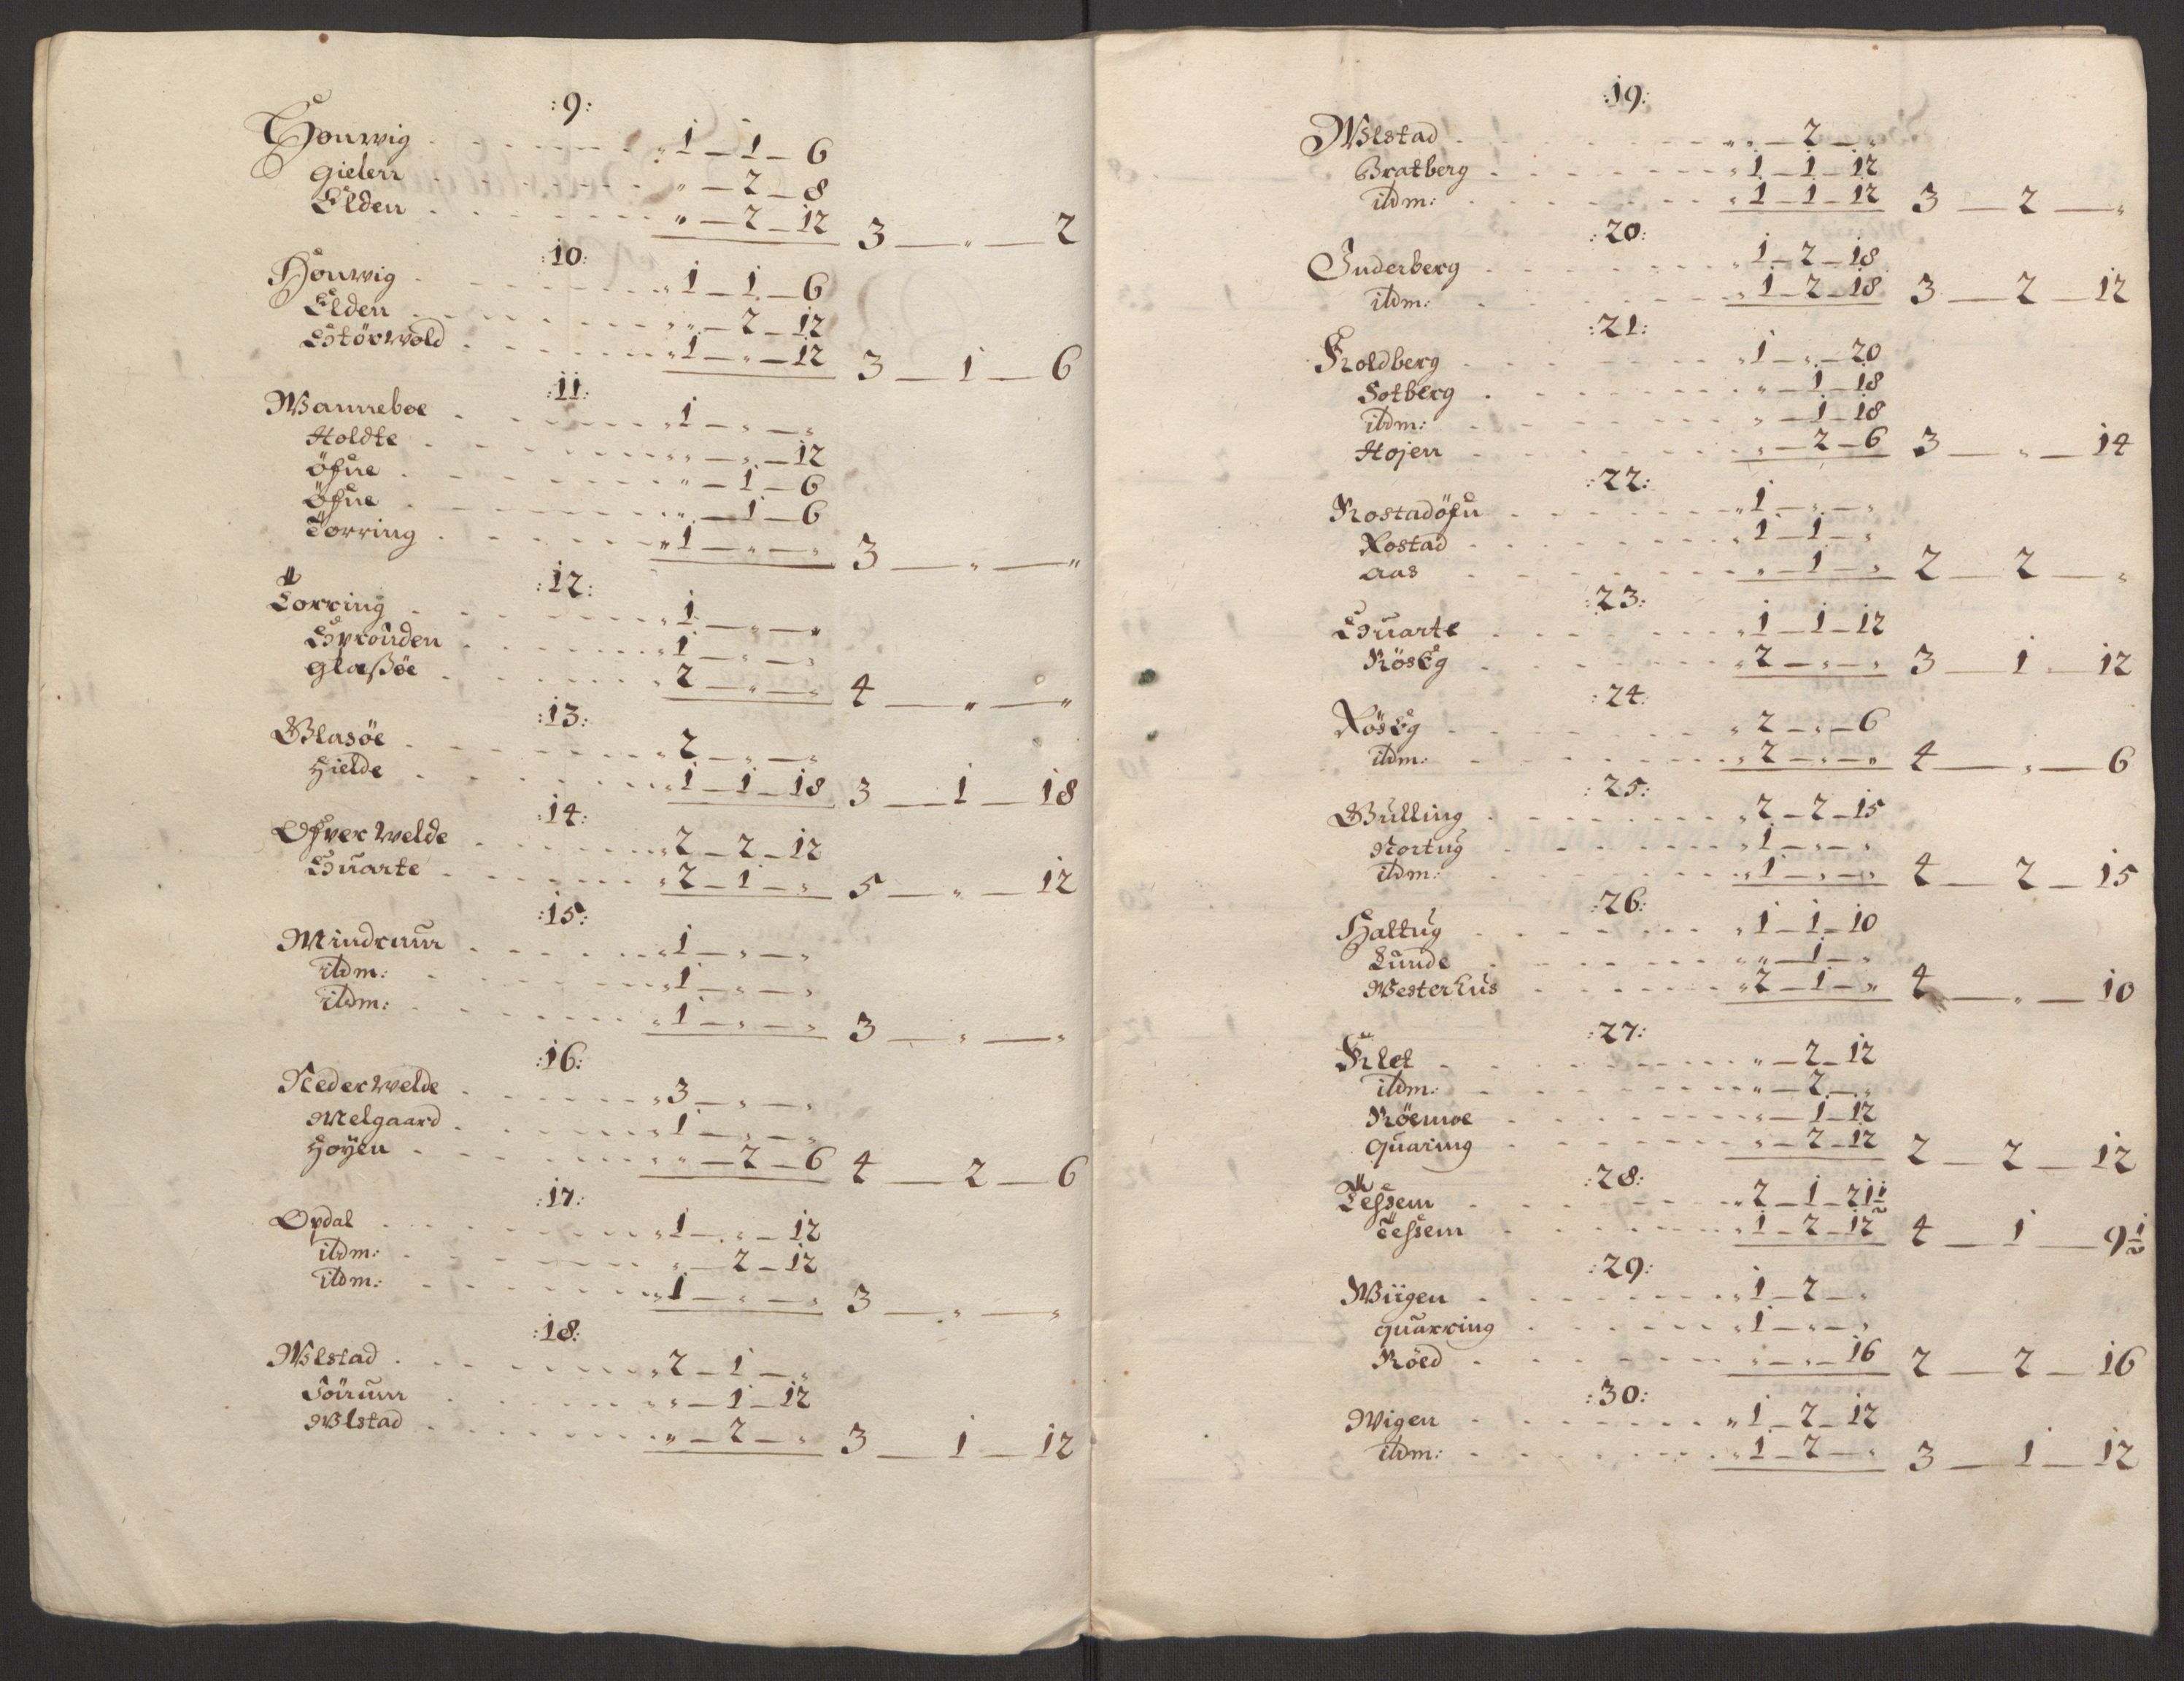 :9:
Honwig . . . . . . . „ 1 — 1 — 6
gielen . . . . . . . „ — 2 — 8
Elden . . . . . . . „ — 2 — 12 3 — „ — 2
:10:
Honwig . . . . . . . „ 1 — 1 — 6
Elden . . . . . . . „ — 2 — 12
Störwold . . . . . . . „ 1 — „ — 12 3 — 1 — 6
:11:
Wanneboe . . . . . . . „ 1 — „ — „
Holdte . . . . . . . „ — „ — 12
öfne . . . . . . . „ — 1 — 6
öfne . . . . . . . „ — 1 — 6
Torring . . . . . . . „ 1 — „ — „ 3 — „ — „
:12:
Torring . . . . . . . „ 1 — „ — „
Sprouden . . . . . . . „ 1 — „ — „
glaßöe . . . . . . . „ 2 — „ — „ 4 — „ — „
:13:
Glasöe . . . . . . . „ 2 — „ — „
hielde . . . . . . . „ 1 — 1 — 18 3 — 1 — 18
:14:
Ofver welde . . . . . . . „ 2 — 2 — 12
Suarte . . . . . . . „ 2 — 1 — „ 5 — „ — 12
:15:
Mindruun . . . . . . . „ 1 — „ — „
ildm: . . . . . . . „ 1 — „ — „
ildm: . . . . . . . „ 1 — „ — „ 3 — „ — „
:16:
Neder welde . . . . . . . „ 3 — „ — „
Melgaard . . . . . . . „ 1 — „ — „
höyen . . . . . . . „ — 2 — 6 4 — 2 — 6
:17:
Opdal . . . . . . . „ 1 — „ — 12
ildm: . . . . . . . „ — 2 — 12
ildm: . . . . . . . „ 1 — „ — „ 3 — „ — „
:18:
Wlstad . . . . . . . „ 2 — 1 — „
Sörum . . . . . . . „ — 1 — 12
Wlstad . . . . . . . „ — 2 — „ 3 — 1 — 12
:19:
Wlstad . . . . . . . „ — 2 — „
Bratberg . . . . . . . „ 1 — 1 — 12
ildm: . . . . . . . „ 1 — 1 — 12 3 — 2 — „
:20:
Inderberg . . . . . . . „ 1 — 2 — 18
ildm: . . . . . . . „ 1 — 2 — 18 3 — 2 — 12
:21:
Koldberg . . . . . . . „ 1 — „ — 20
Sotberg . . . . . . . „ — 1 — 18
ibdm: . . . . . . . „ — 1 — 18
Hojen . . . . . . . „ — 2 — 6 3 — „ — 14
:22:
Rostadöfn . . . . . . . „ 1 — „ — „
Rostad . . . . . . . „ 1 — 1 — „
aas . . . . . . . „ — 1 — „ 2 — 2 — „
:23:
Suarte . . . . . . . „ 1 — 1 — 12
RösEg . . . . . . . „ 2 — „ — „ 3 — 1 — 12
:24:
Rös Eg . . . . . . . „ 2 — „ — 6
ildm: . . . . . . . „ 2 — „ — „ 4 — „ — 6
:25:
Gulling . . . . . . . „ 2 — 2 — 15
Nortug . . . . . . . „ 1 — „ — „
ildm: . . . . . . . „ 1 — „ — „ 4 — 2 — 15
:26:
Haltug . . . . . . . „ 1 — 1 — 10
Lunde . . . . . . . „ — 1 — „
Westerhus . . . . . . . „ 2 — 1 — „ 4 — „ — 10
:27:
Klet . . . . . . . „ — 2 — 12
ildm: . . . . . . . „ — 2 — „
Röemoe . . . . . . . „ — 1 — 12
quaring . . . . . . . „ — 2 — 12 2 — 2 — 12
:28:
Tessem . . . . . . . „ 2 — 1 — 21½
Tessem . . . . . . . „ 1 — 2 — 12 4 — 1 — 9½
:29:
Wiigen . . . . . . . „ 1 — 2 — „
quarring . . . . . . . „ 1 — „ — „
Röed . . . . . . . „ — „ — 16 2 — 2 — 16
:30:
Wigen . . . . . . . „ 1 — 2 — 12
ildm: . . . . . . . „ 1 — 2 — „ 3 — 1 — 12